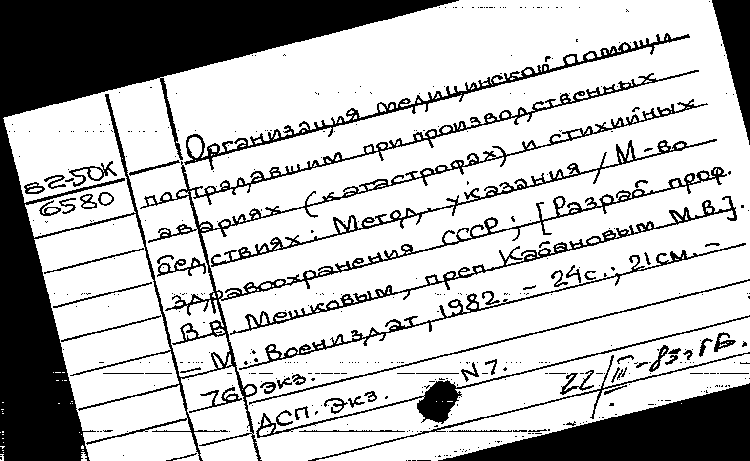 Организация медицинской помощи
82-50К
6580
пострадавшим при производственных
авариях (катастрофах) и стихийных
бедствиях: Метод. указания / М-во
здравоохранения СССР; [Разраб. проф.
В.В. Мешковым, преп. Кабановым М.В.].
— М.: Воениздат, 1982. – 24с.; 21см. –
760экз.
ДСП. Экз. N 7.
22/III-83г. ГБ.